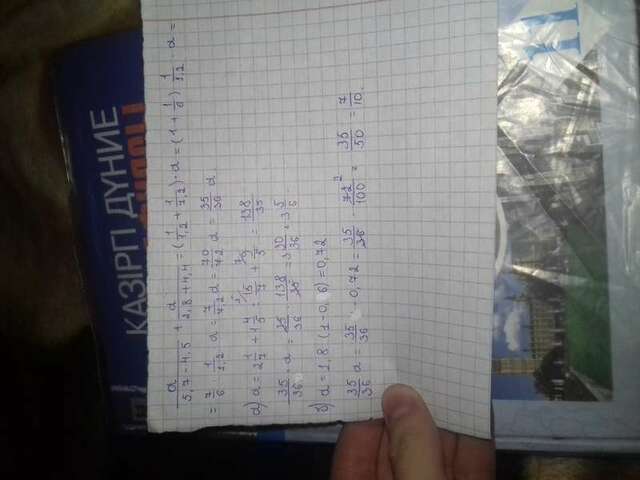 ҚАЗІРГІ ДҮНИЕ
a/(5,7-4,5) + a/(2,8+4,4) = (1/1,2 + 1/7,2)·a = (1+1/6) 1/1,2 · a =
= 7/6 · 1/1,2 a = 7/7,2 a = 70/72 a = 35/36 a
а) a = 2 1/7 + 1 4/5 = 15/7 + 9/5 = 138/35
35/36 · a = 35/36 · 138/35 = 3 30/36 = 3 5/6
б) a = 1,8 · (1-0,6) = 0,72
35/36 a = 35/36 · 0,72 = 35/36 · 72/100 = 35/50 = 7/10.
11